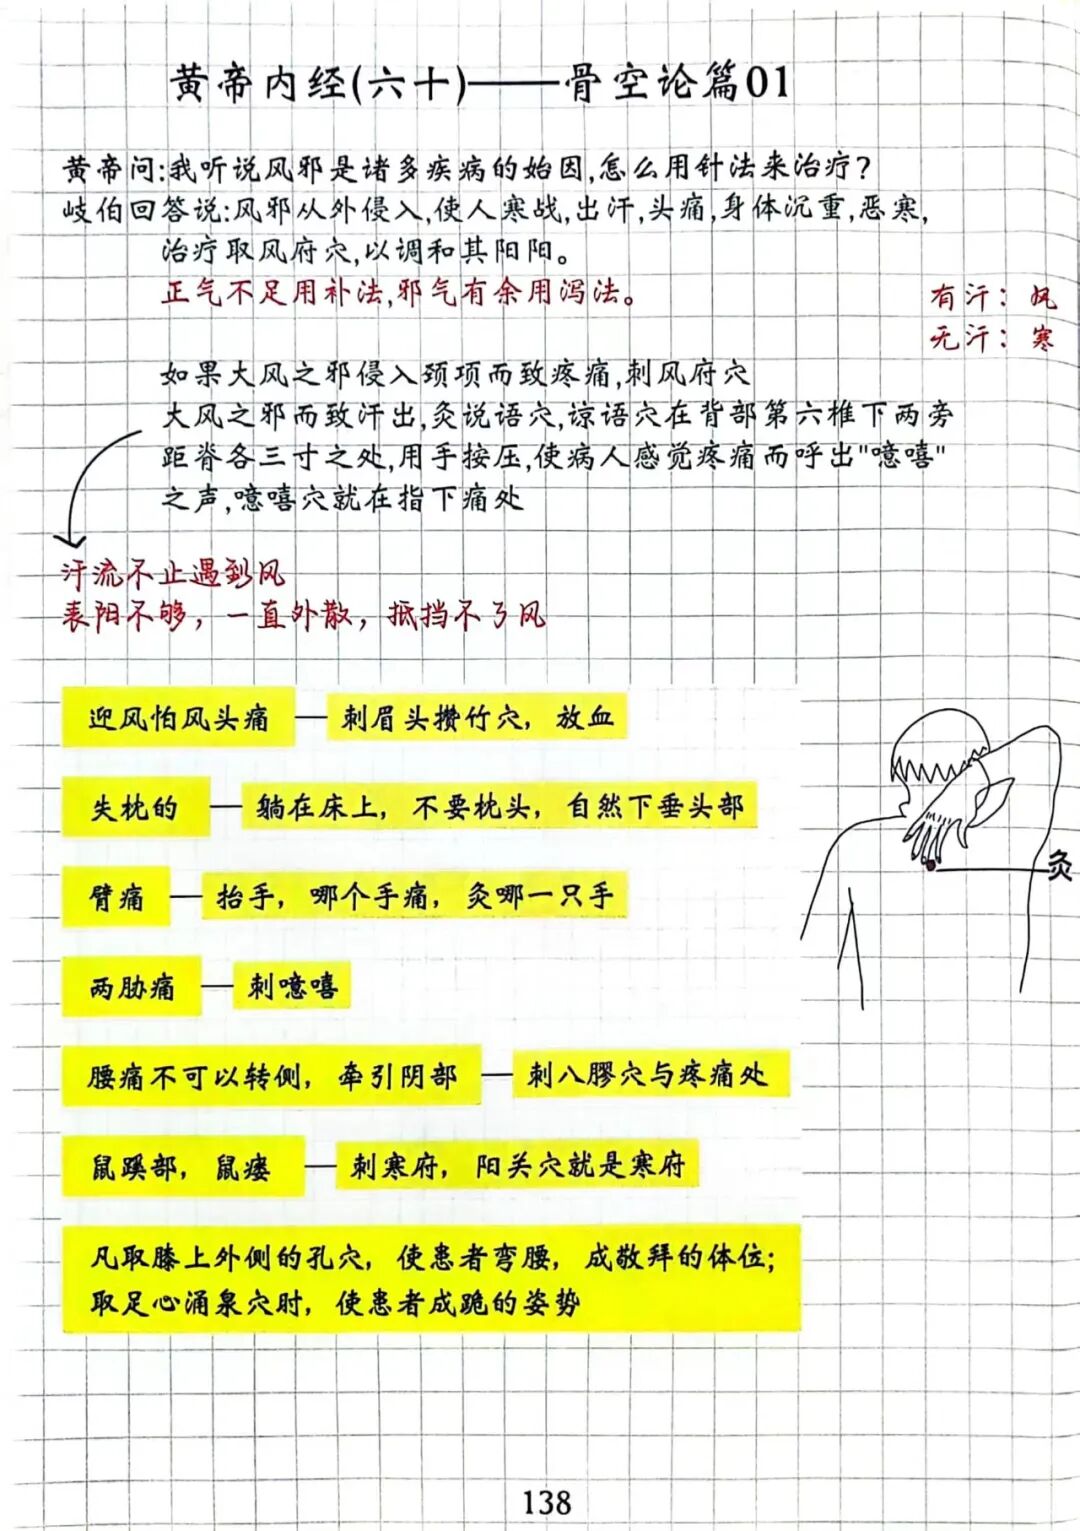 黄帝内经(六十)——骨空论篇01
黄帝问:我听说风邪是诸多疾病的始因,怎么用针法来治疗?
岐伯回答说:风邪从外侵入,使人寒战,出汗,头痛,身体沉重,恶寒,
治疗取风府穴,以调和其阳阳。
正气不足用补法,邪气有余用泻法。
有汗：风
无汗：寒
如果大风之邪侵入颈项而致疼痛,刺风府穴
大风之邪而致汗出,灸说语穴,谅语穴在背部第六椎下两旁
距脊各三寸之处,用手按压,使病人感觉疼痛而呼出"噫嘻"
之声,噫嘻穴就在指下痛处
汗流不止遇到风
表阳不够，一直外散，抵挡不了风
迎风怕风头痛 — 刺眉头攒竹穴，放血
失枕的 — 躺在床上，不要枕头，自然下垂头部
臂痛 — 抬手，哪个手痛，灸哪一只手
灸
两胁痛 — 刺噫嘻
腰痛不可以转侧，牵引阴部 — 刺八髎穴与疼痛处
鼠蹊部，鼠瘘 — 刺寒府，阳关穴就是寒府
凡取膝上外侧的孔穴，使患者弯腰，成敬拜的体位；
取足心涌泉穴时，使患者成跪的姿势
138